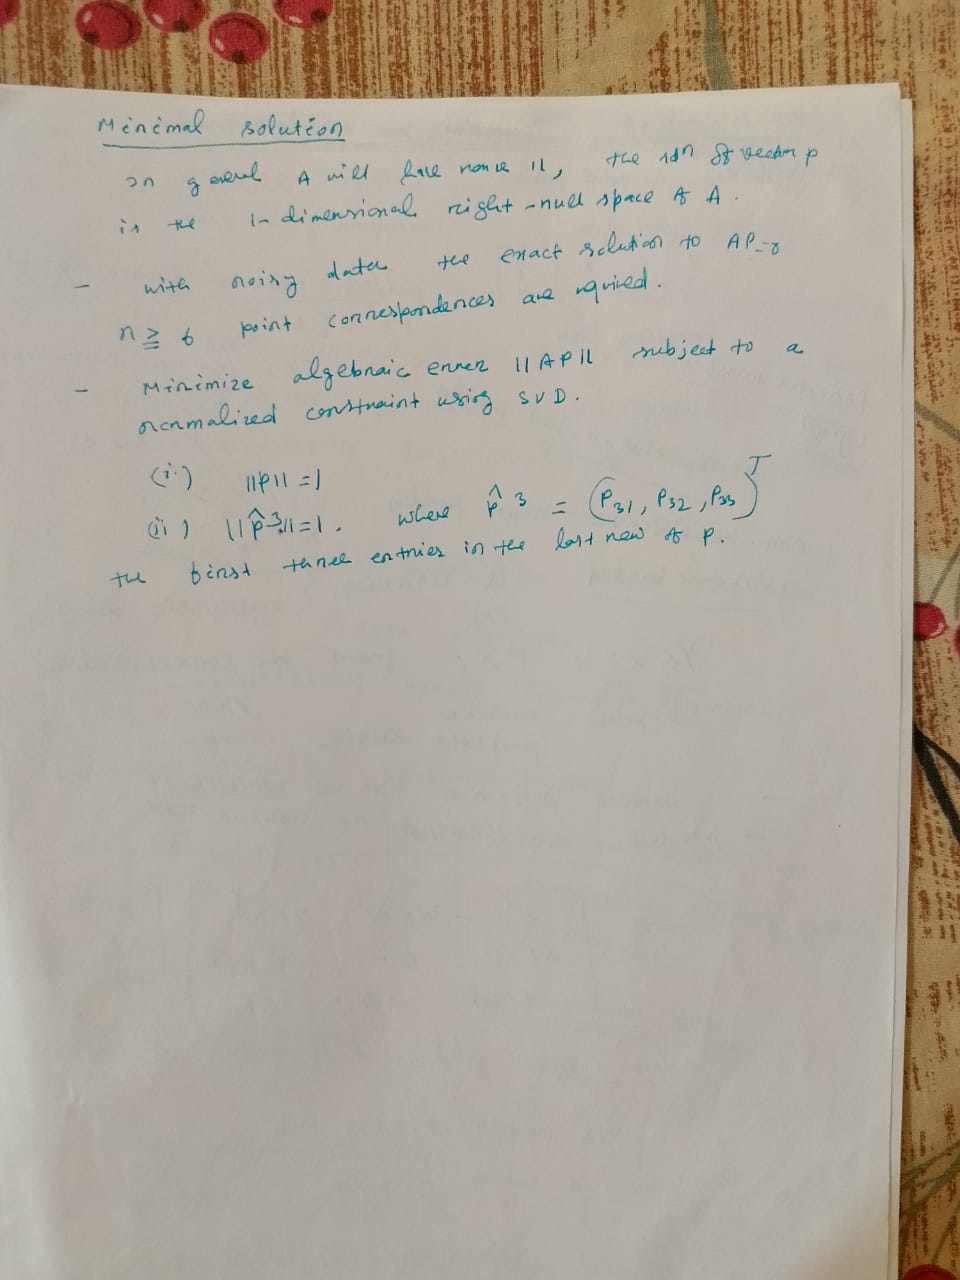 Minimal solution
In general A will have rank 11, the soln of vector p
is the 1-dimensional right-null space of A.
- with noisy data the exact solution to AP=0
n ≥ 6 point correspondences are required.
- Minimize algebraic error ||AP|| subject to a
normalized constraint using SVD.
(i.) ||P|| = 1
(ii) ||p̂³|| = 1. where p̂³ = (P31, P32, P33)^T
the first three entries in the last row of P.